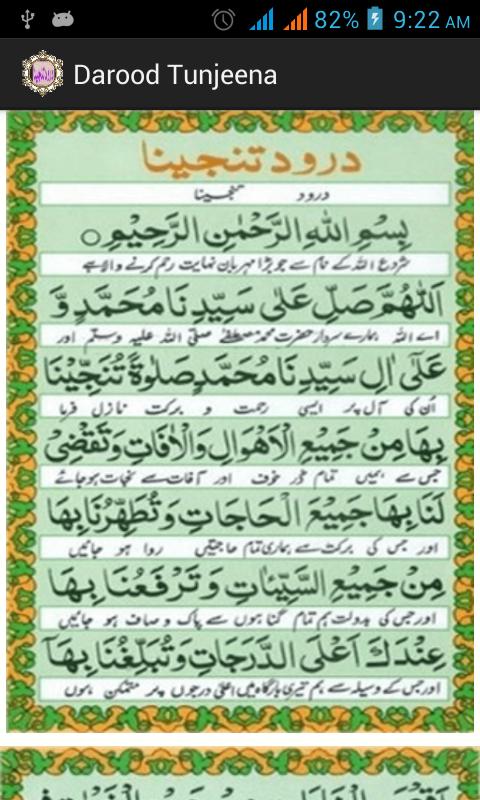 82% 9:22 AM
Darood Tunjeena
درود تنجینا
درود تنجینا
بِسْمِ اللهِ الرَّحْمٰنِ الرَّحِيْمِ ○
شروع اللہ کے نام سے جو بڑا مہربان نہایت رحم کرنے والا ہے
اَللّٰهُمَّ صَلِّ عَلٰى سَيِّدِنَا مُحَمَّدٍ وَّ
اے اللہ ہمارے سردار حضرت محمد مصطفٰے صلی اللہ علیہ وسلم اور
عَلٰٓى اٰلِ سَيِّدِنَا مُحَمَّدٍ صَلٰوةً تُنَجِّيْنَا
اُن کی آل پر ایسی رحمت و برکت نازل فرما
بِهَا مِنْ جَمِيْعِ الْاَهْوَالِ وَالْاٰفَاتِ وَتَقْضِىْ
جس سے ہمیں تمام ڈر خوف اور آفات سے نجات ہو جائے
لَنَا بِهَا جَمِيْعَ الْحَاجَاتِ وَتُطَهِّرُنَا بِهَا
اور جس کی برکت سے ہماری تمام حاجتیں روا ہو جائیں
مِنْ جَمِيْعِ السَّيِّئَاتِ وَتَرْفَعُنَا بِهَا
اور جس کی بدولت ہم تمام گناہوں سے پاک و صاف ہو جائیں
عِنْدَكَ اَعْلَى الدَّرَجَاتِ وَتُبَلِّغُنَا بِهَآ
اور جس کے وسیلہ سے ہم تیری بارگاہ میں اعلیٰ درجوں پر متمکن ہوں